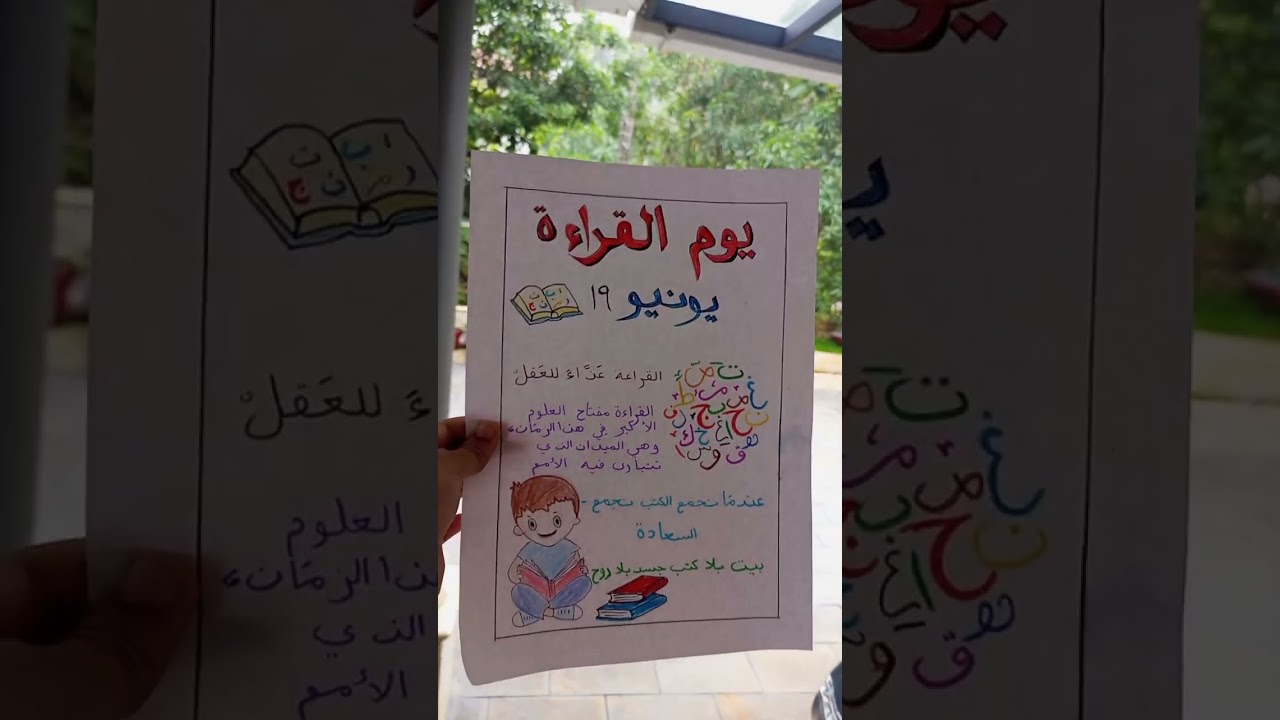 يوم القراءة
يونيو ١٩
القراءة غَذَّاءً للعَقلّ
القراءة مفتاح العلوم
الأكبر في هذا الزمان،
وهي الميدان الذي
تتبارى فيه الأمم
عندمَا نجمع الكتب نجمع -
السعادة
بيت بلا كتب جسد بلا روح